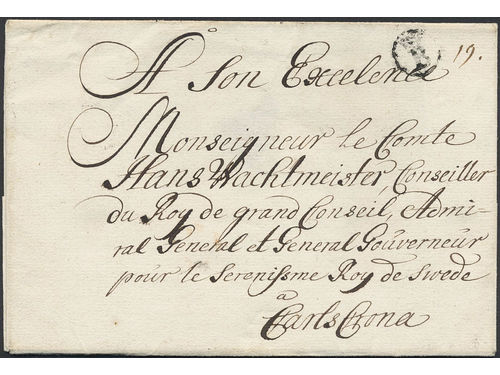 A Son Excelence 19.
Monseigneur le Comte
Hans Wachtmeister, Conseiller
du Roy de grand Conseil, Admi-
ral General et General Gouverneur
pour le Serenissme Roy de Swede
à
CarlsCrona